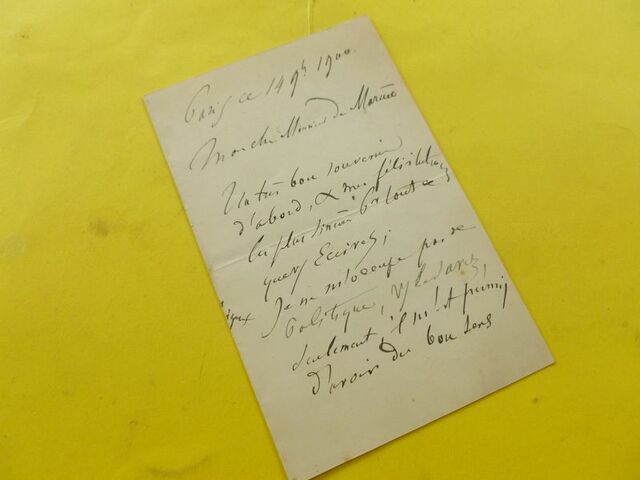 Paris ce 14 9bre 1900.
Mon cher Monsieur de
Un très bon souvenir
d'abord, & mes félicitations
les plus sincères pr tout ce
que vs Ecrivez;
Je ne m'occupe pas de
Politique, vs le savez,
seulement il m'est permis
d'avoir du bon sens